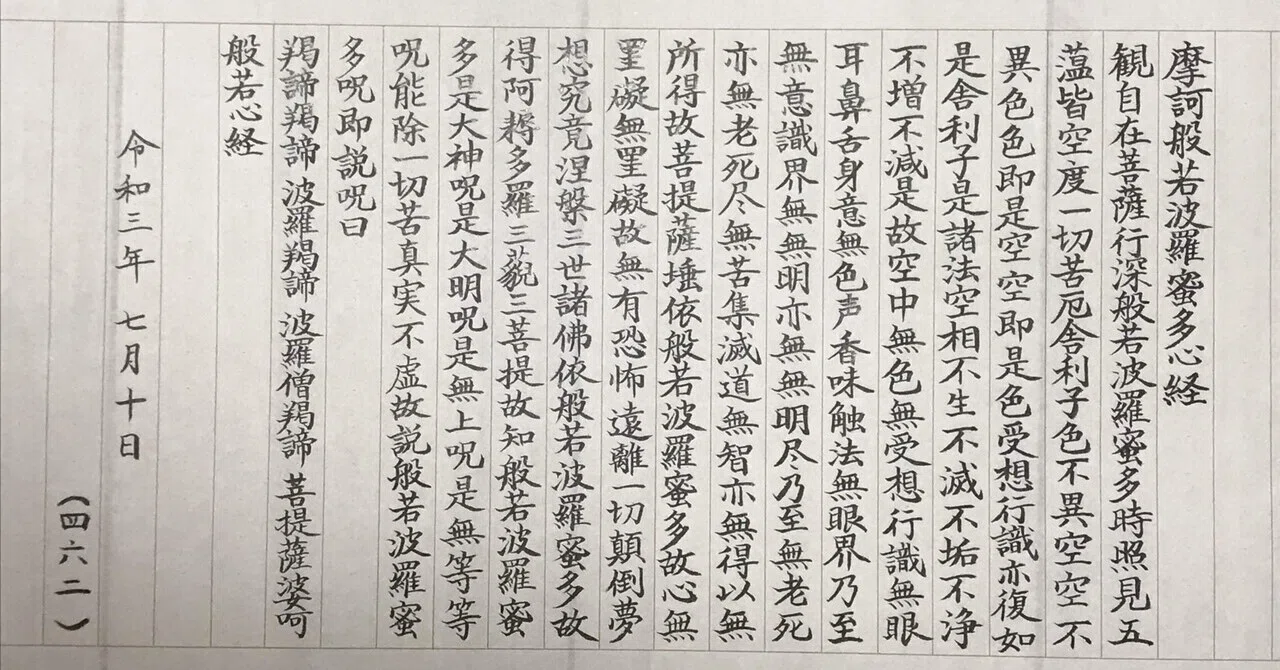 摩訶般若波羅蜜多心経
観自在菩薩行深般若波羅蜜多時照見五
蕰皆空度一切苦厄舎利子色不異空空不
異色色即是空空即是色受想行識亦復如
是舎利子是諸法空相不生不滅不垢不浄
不増不減是故空中無色無受想行識無眼
耳鼻舌身意無色声香味触法無眼界乃至
無意識界無無明亦無無明尽乃至無老死
亦無老死尽無苦集滅道無智亦無得以無
所得故菩提薩埵依般若波羅蜜多故心無
罣礙無罣礙故無有恐怖遠離一切顛倒夢
想究竟涅槃三世諸佛依般若波羅蜜多故
得阿耨多羅三藐三菩提故知般若波羅蜜
多是大神呪是大明呪是無上呪是無等等
呪能除一切苦真実不虚故説般若波羅蜜
多呪即説呪曰
羯諦羯諦 波羅羯諦 波羅僧羯諦 菩提薩婆呵
般若心経
令和三年 七月十日
（四六二）